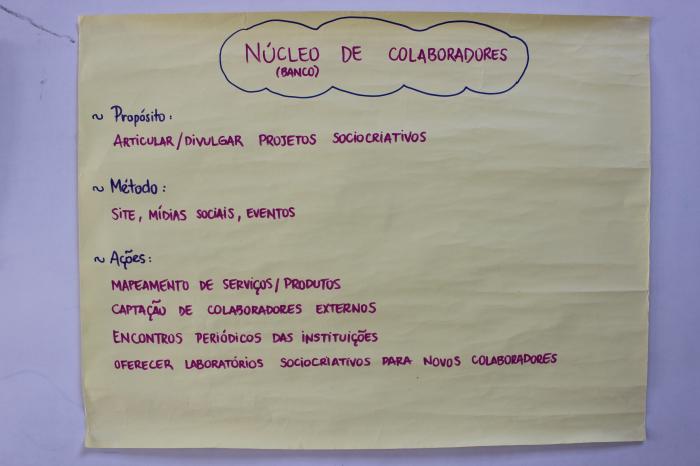 NÚCLEO DE COLABORADORES
(BANCO)
~ Propósito:
ARTICULAR/DIVULGAR PROJETOS SOCIOCRIATIVOS
~ Método:
SITE, MÍDIAS SOCIAIS, EVENTOS
~ Ações:
MAPEAMENTO DE SERVIÇOS/PRODUTOS
CAPTAÇÃO DE COLABORADORES EXTERNOS
ENCONTROS PERIÓDICOS DAS INSTITUIÇÕES
OFERECER LABORATÓRIOS SOCIOCRIATIVOS PARA NOVOS COLABORADORES